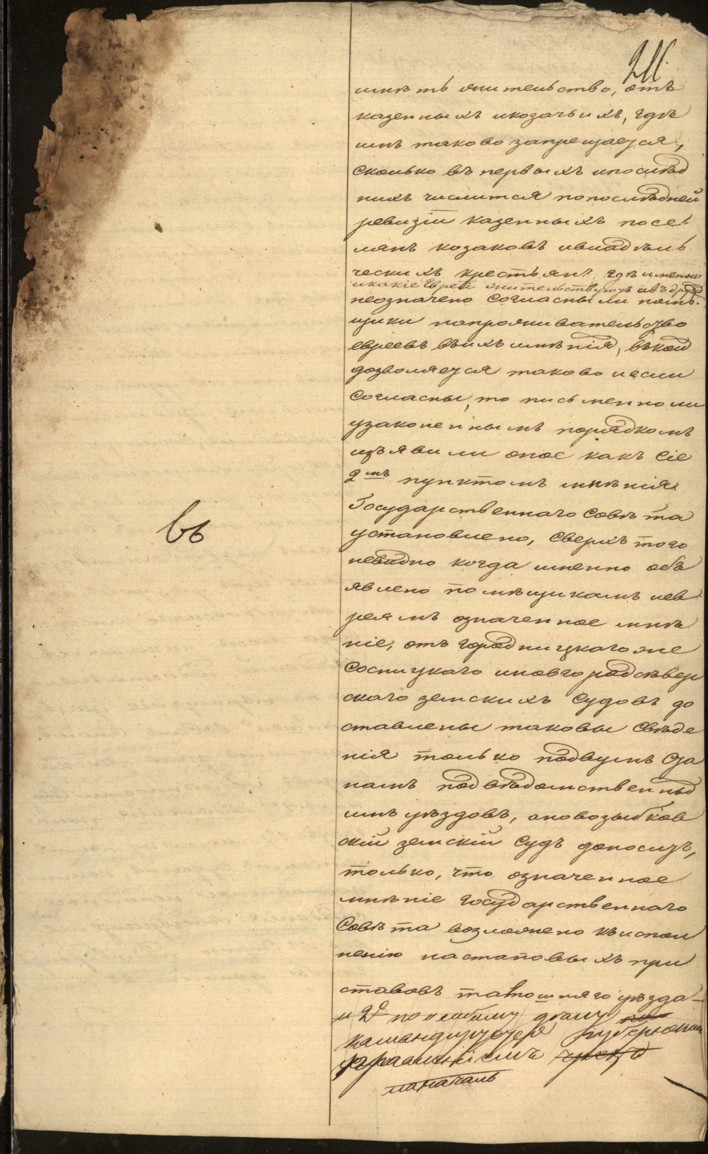 имѣть жительство, отъ
казенныхъ икозачьихъ, гдѣ
имъ таково запрещается,
сколько въ первыхъ ипослѣд
нихъ числится попослѣдней
ревизіи казенныхъ посе
лянъ козаковъ ивладѣль
ческихъ крестьянъ гдѣ именно
икакіе Евреи жительствуютъ
неозначено согласны ли помѣ
щики напроживательство
евреевъ въихъ имѣнія, въкой
дозволяется таково иесли
согласны, то письменно ли
узаконеннымъ порядкомъ
изъявили оное какъ сіе
2мъ пунктомъ мнѣнія
Государственнаго Совѣта
установлено, сверхъ того
невидно когда именно объ
явлено помѣщикамъ иев
реямъ означенное мнѣ
ніе, отъ Городницкаго же
Сосницкаго иновгородсѣвер
скаго земскихъ Судовъ до
ставлены таковы свѣде
нія только подвумъ Ста
намъ подвѣдомственныхъ
имъ уѣздовъ, ановозыбков
скій земскій Судъ доноситъ,
только, что означенное
мнѣніе государственнаго
Совѣта возложено къиспол
ненію настановыхъ при
ставовъ тамошняго уѣзда
и 2е
командируется Губернскимъ
въ